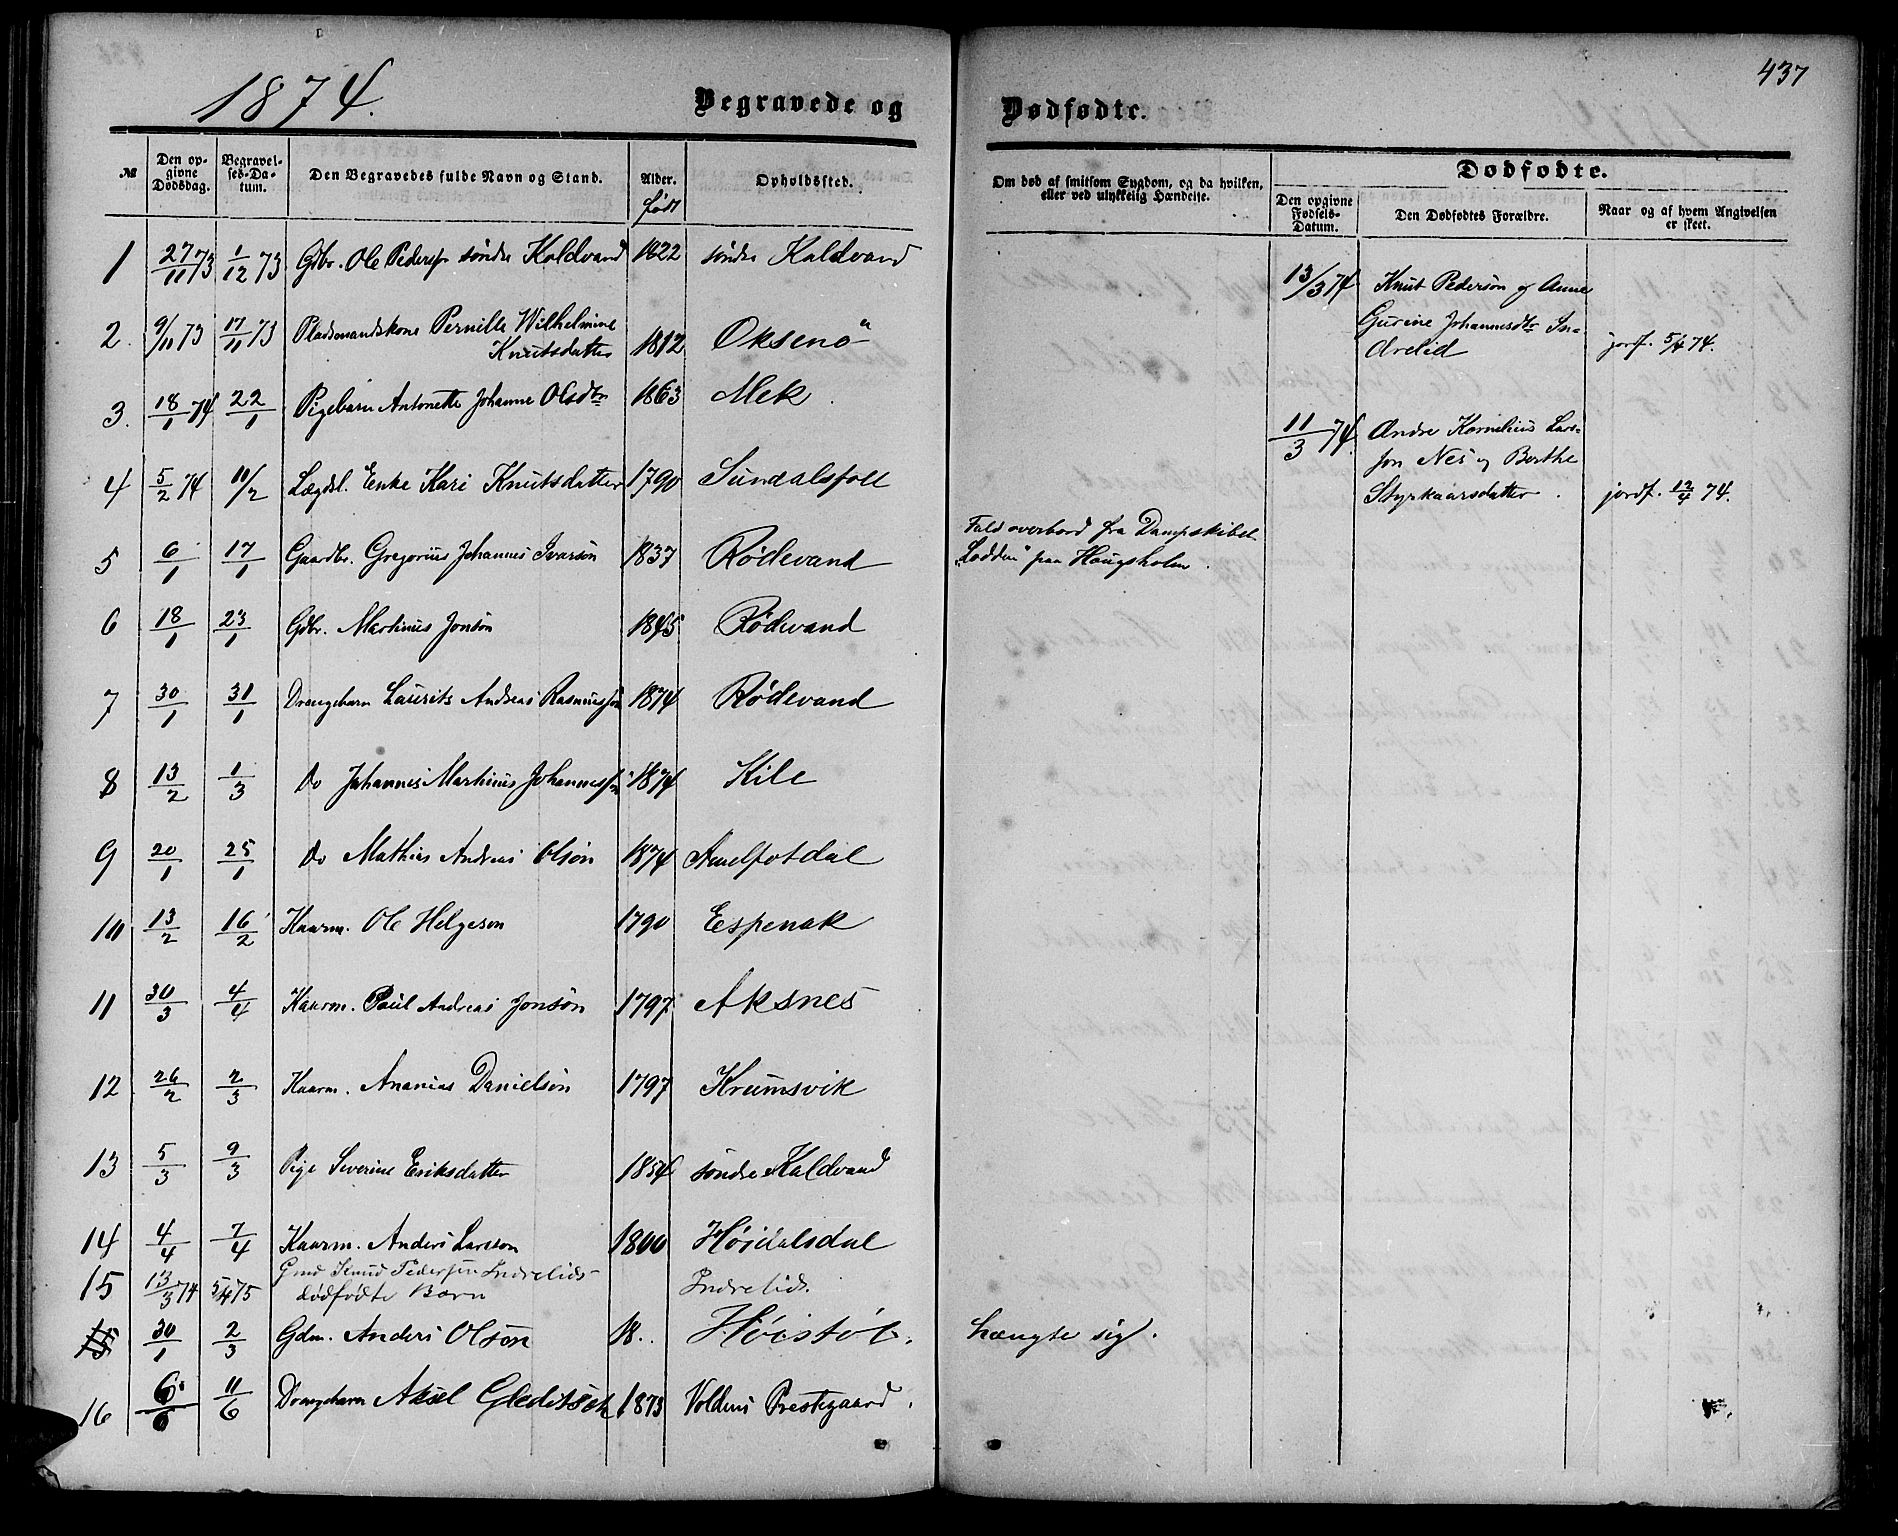 1874.
Begravede og
Dødfødte.
437
№
Den opgivne Dødsdag.
Begravelses-Datum.
Den Begravedes fulde Navn og Stand.
Alder. født
Opholdssted.
Om død af smitsom Sygdom, og da hvilken, eller ved ulykkelig Hændelse.
Dødfødte.
Den opgivne Fødsels-Datum.
Den Dødfødtes Forældre.
Naar og af hvem Angivelsen er skeet.
1 27/11 73 1/12 73 Gdbr. Ole Peders. søndre Kaldvand 1822 søndre Kaldvand
13/3 74 Knut Pederson og Anne
Gurine Johannesdtr In-
drelid jordf. 5/4 74.
2. 9/11 73 17/11 73 Pladsmandskone Pernille Wilhelmine
Knutsdatter 1812 Oksenø
3. 18/1 74 22/1 Pigebarn Antonette Johanne Olsdtr 1863 Mek
11/3 74. Andre Kornelius Lars-
son Nes og Berthe
Styrkaarsdatter. jordf. 12/4 74.
4 5/2 74 10/2 Lægdsl. Enke Kari Knutsdatter 1790 Sundalsfoll
5 6/1 17/1 Gaardbr. Gregorius Johannes Ivarsøn 1837 Rødevand
Fald overbord fra Dampskibet
"Lodden" paa Haugsholm.
6 18/1 23/1 Gdbr. Martinus Jonsøn 1845 Rødevand
7 30/1 31/1 Drengebarn Laurits Andreas Rasmussøn 1874 Rødevand
8 13/2 1/3 Do Johannes Martinus Johannessøn 1874 Kile
9 20/1 25/1 Do Mathias Andreas Olsøn 1874 Aamelfotdal
10 13/2 16/2 Kaarm. Ole Helgeson 1790 Espenak
11 30/3 4/4 Kaarm. Paul Andreas Jonsøn 1797 Aksnes
12 26/2 2/3 Kaarm. Ananias Danielsøn 1797 Krumsvik
13 5/3 9/3 Pige Severine Eriksdatter 1854 søndre Kaldvand
14 4/4 7/4 Kaarm. Anders Larsson 1800 Høidalsdal
15 13/3 74 5/4 75 Gmd Knud Pedersen Indrelids
dødfødte Barn Indrelid.
15 30/1 2/3 Gdm. Anders Olsøn 18.. Høistøl. hængte sig.
16 6/6 11/6 Drengebarn Aksel Gleditsch 1873 Voldens Prestegaard.